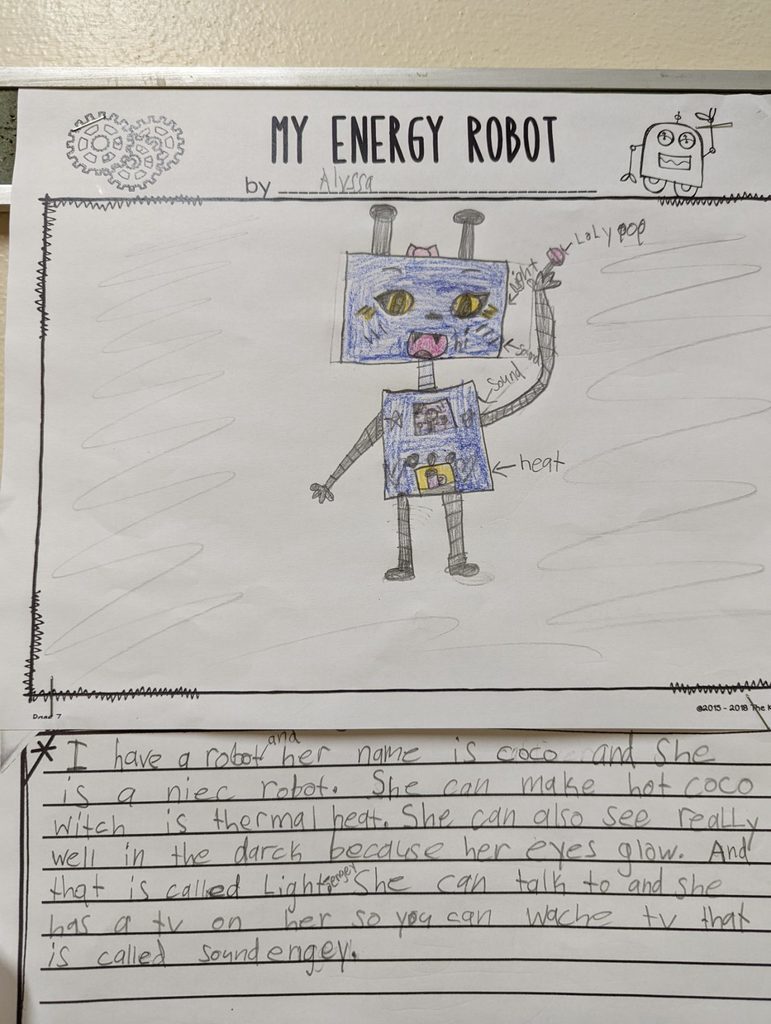 MY ENERGY ROBOT
by Alyssa
LoLy pop
Light
hi
Sound
Sound
heat
©2015 - 2018 The K
I have a robot and her name is coco and She
is a niec robot. She can make hot coco
witch is thermal heat. She can also see really
well in the darck because her eyes glow. And
that is called Light engey She can talk to and she
has a tv on her so you can wache tv that
is called sound engey.